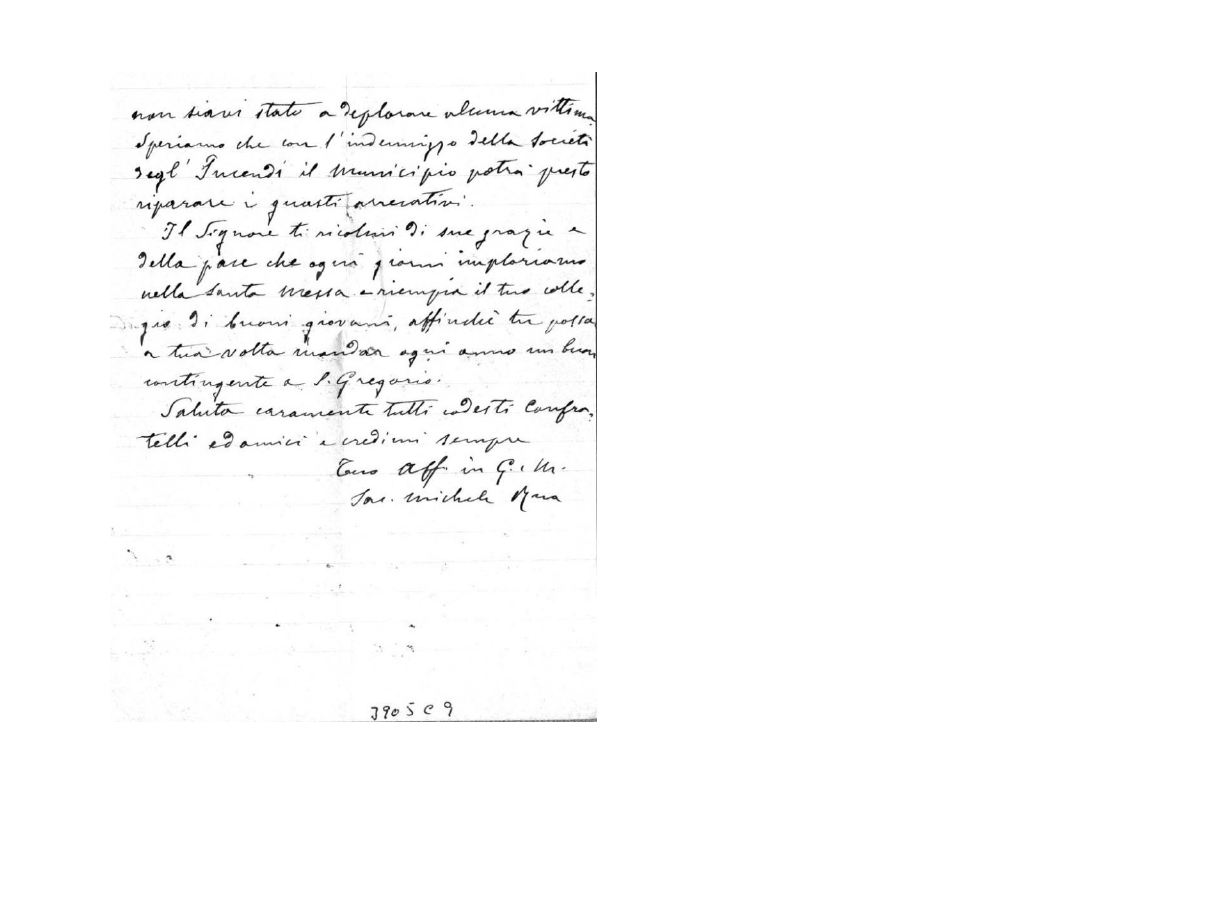 non siavi stato a deplorare alcuna vittima.
Speriamo che con l'indennizzo della Società
degl' Incendi il Municipio potrà presto
riparare i guasti arrecativi.
Il Signore ti ricolmi di sue grazie e
della pace che ogni giorni imploriamo
nella Santa Messa e riempia il tuo colle-
gio di buoni giovani, affinchè tu possa
a tua volta mandar ogni anno un buon
contingente a S. Gregorio.
Saluta caramente tutti codesti Confra-
telli ed amici e credimi sempre
Tuo Aff. in G. e M.
Sac. Michele Rua
3905 C 9